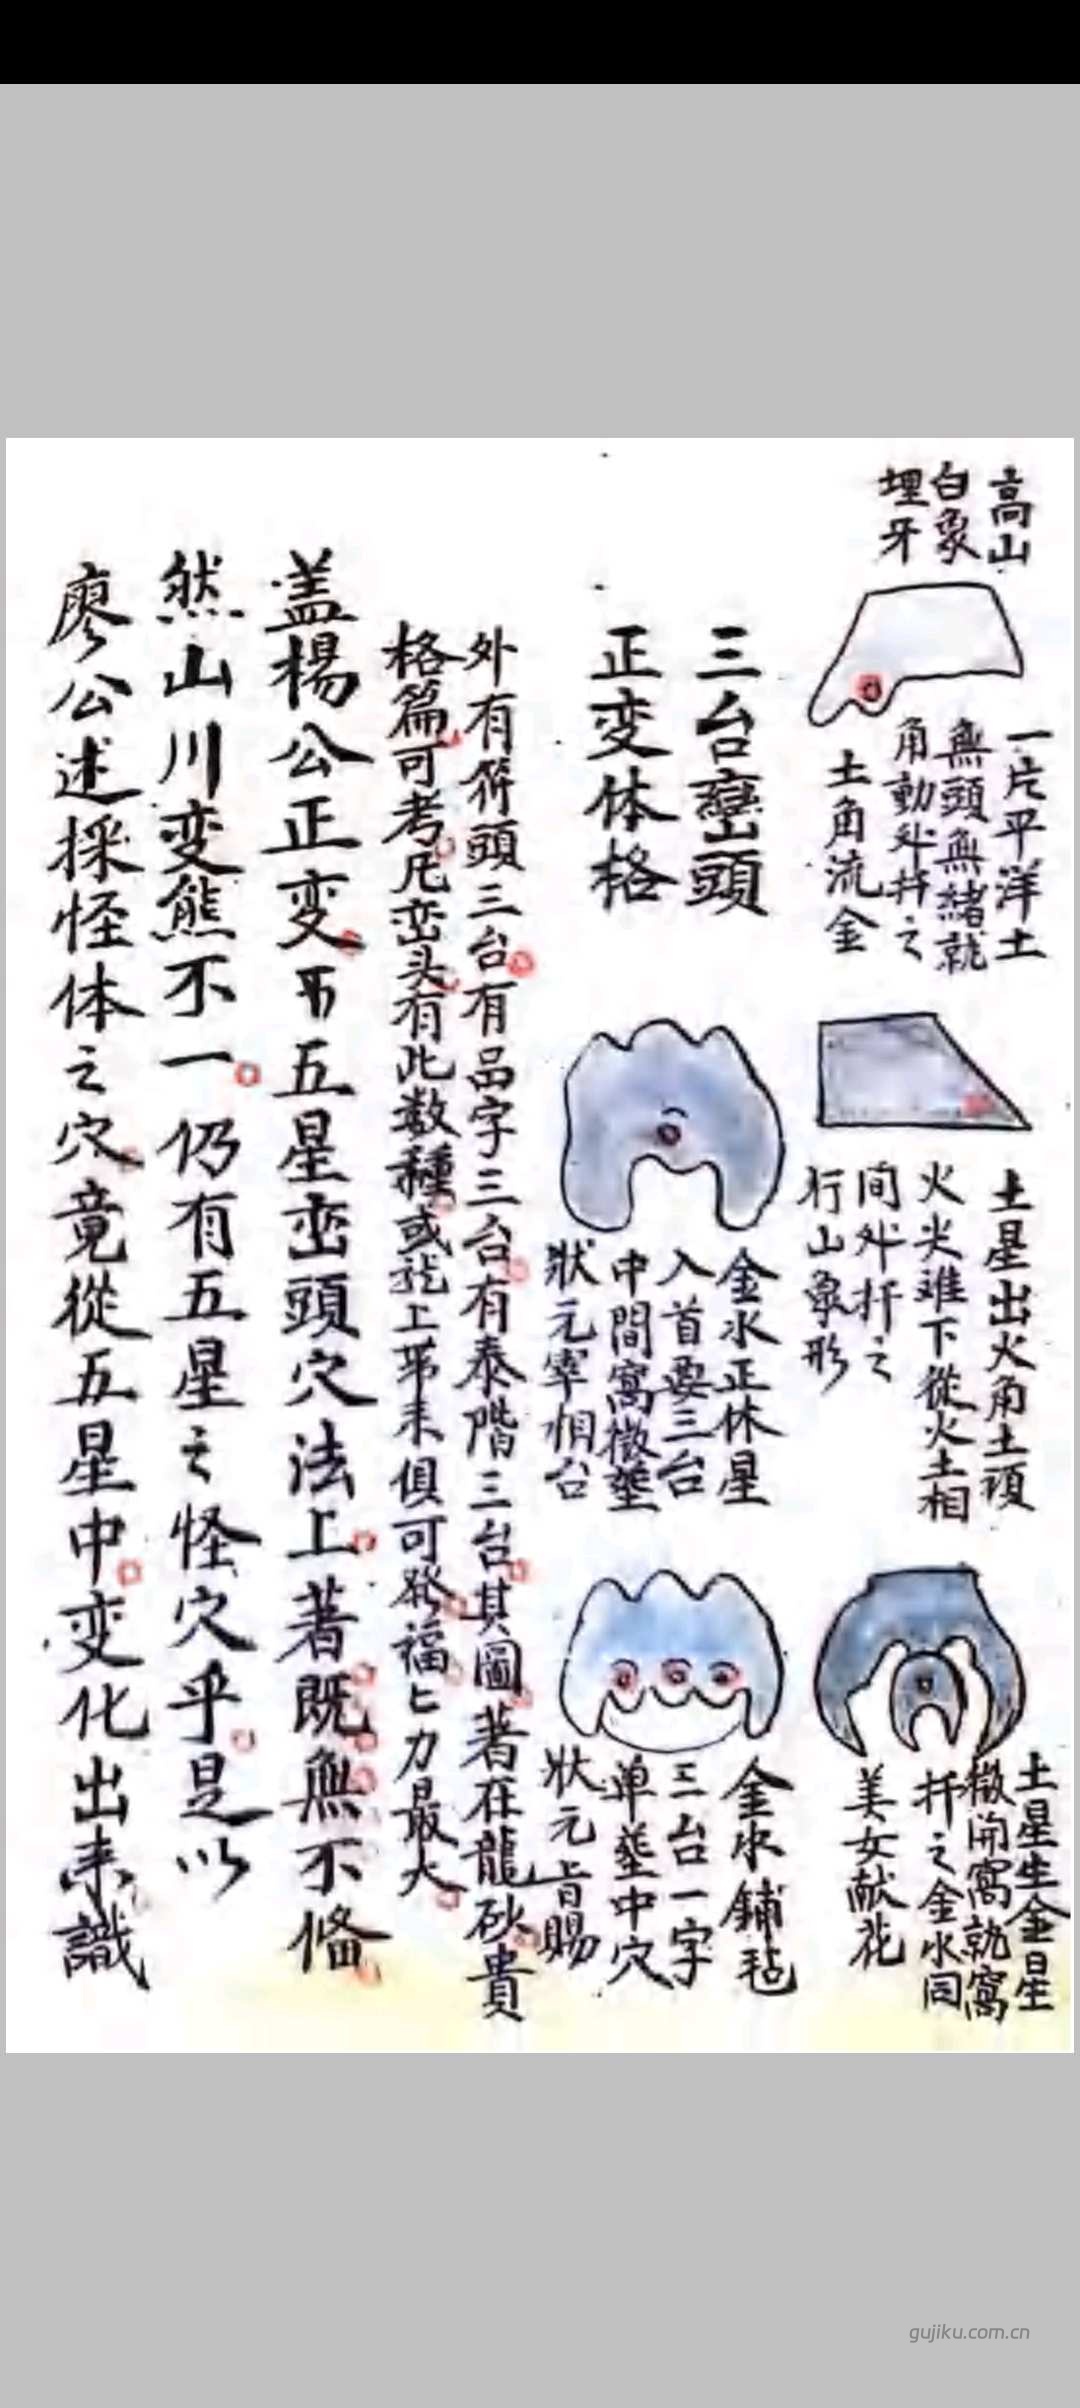 高山
白象
埋牙
一片平洋土
無頭無緒就
角動处扦之
土角流金
土星出火角土頑
火尖难下從火土相
间处扦之
行山象形
土星生金星
微開窩就窩
扦之金水同
美女献花
三台巒頭
正变体格
金水正体星
入首要三台
中間窩微莖
狀元宰相台
金水鋪毡
三台一字
单莖中穴
狀元旨賜
外有併頭三台有品字三台有泰階三台其圖著在龍砂貴
格篇可考凡峦头有此数種或龙上带来俱可發福力最大
盖楊公正变五星峦頭穴法上著既無不俻
然山川变態不一仍有五星之怪穴乎是以
廖公述採怪体之穴竟從五星中变化出来識
gujiku.com.cn